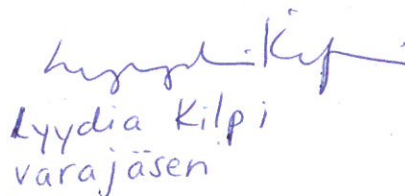 Lyydia Kilpi
Lyydia Kilpi
varajäsen